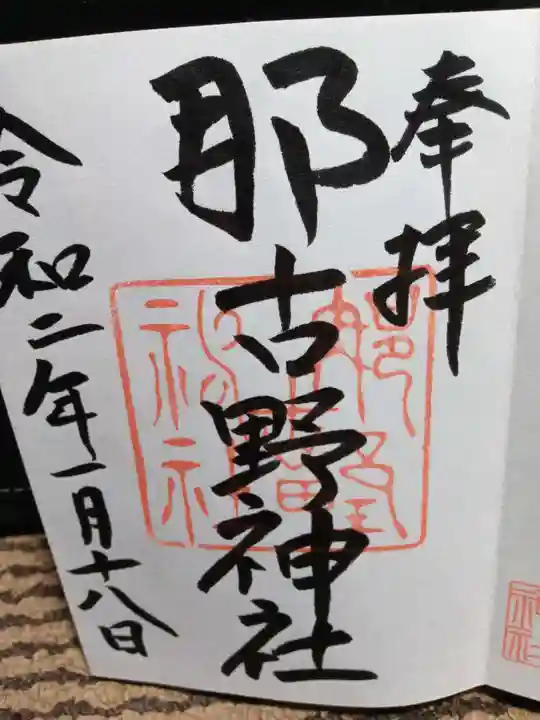 奉拝
那古野神社
令和二年一月十八日